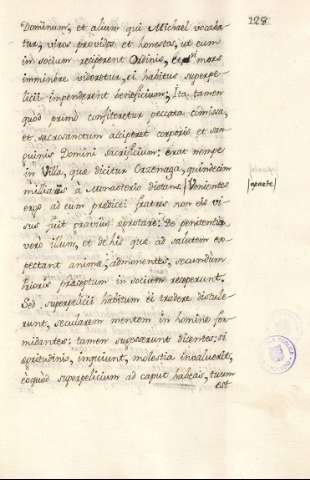 128
Dominum, et alium qui Michael vocaba-
tur, viros providos et honestos, ut eum
in socium reciperent Ordinis, et si mors
imminere videretur, ei habitus superpe-
licii inpenderent beneficium; Ita tamen
quod primò confiteretur peccata comissa,
et sacrosanctum acciperet corporis et san-
guinis Domini Sacrificium: erat nempe
in Villa, que dicitur Orzenaga, quindecim
miliariis à Monasterio distans. Venientes
aparte
ergo ad eum predicti fratres non eis vi-
sus fuit gravius egrotare: De penitentia
verò illum, et de his que ad salutem ex-
pectant anime, admonentes, secundum
Prioris preceptum in socium receperunt.
Sed superpelicii habitum ei tradere distule-
runt, secularem mentem in homine for-
midantes: tamen suposuerunt dicentes: si
egritudinis, inquiunt, molestia invaluerit,
eoquod superpelicium ad caput habeas, tuum
est